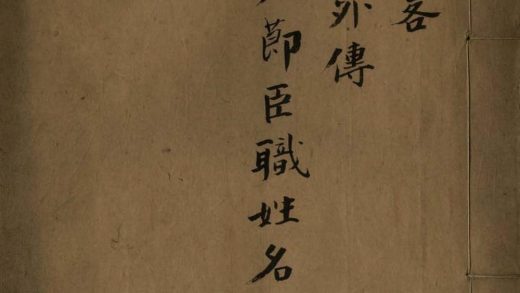 客
外傳
節臣職姓名